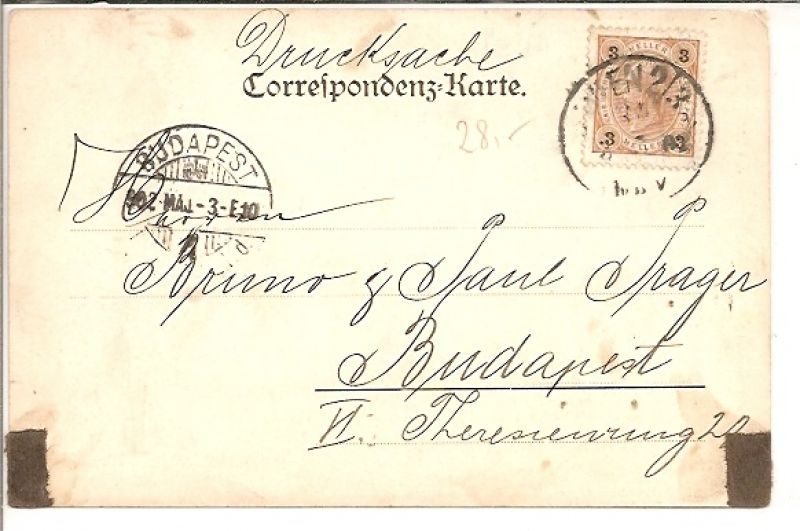 Drucksache
Correspondenz-Karte.
3 HELLER 3
WIEN 2/3
3 HELLER 3
28,-
BUDAPEST
902 MÁJ. -3-E.10
Herren
Bruno & Paul Prager
Budapest
VI. Theresienring 20